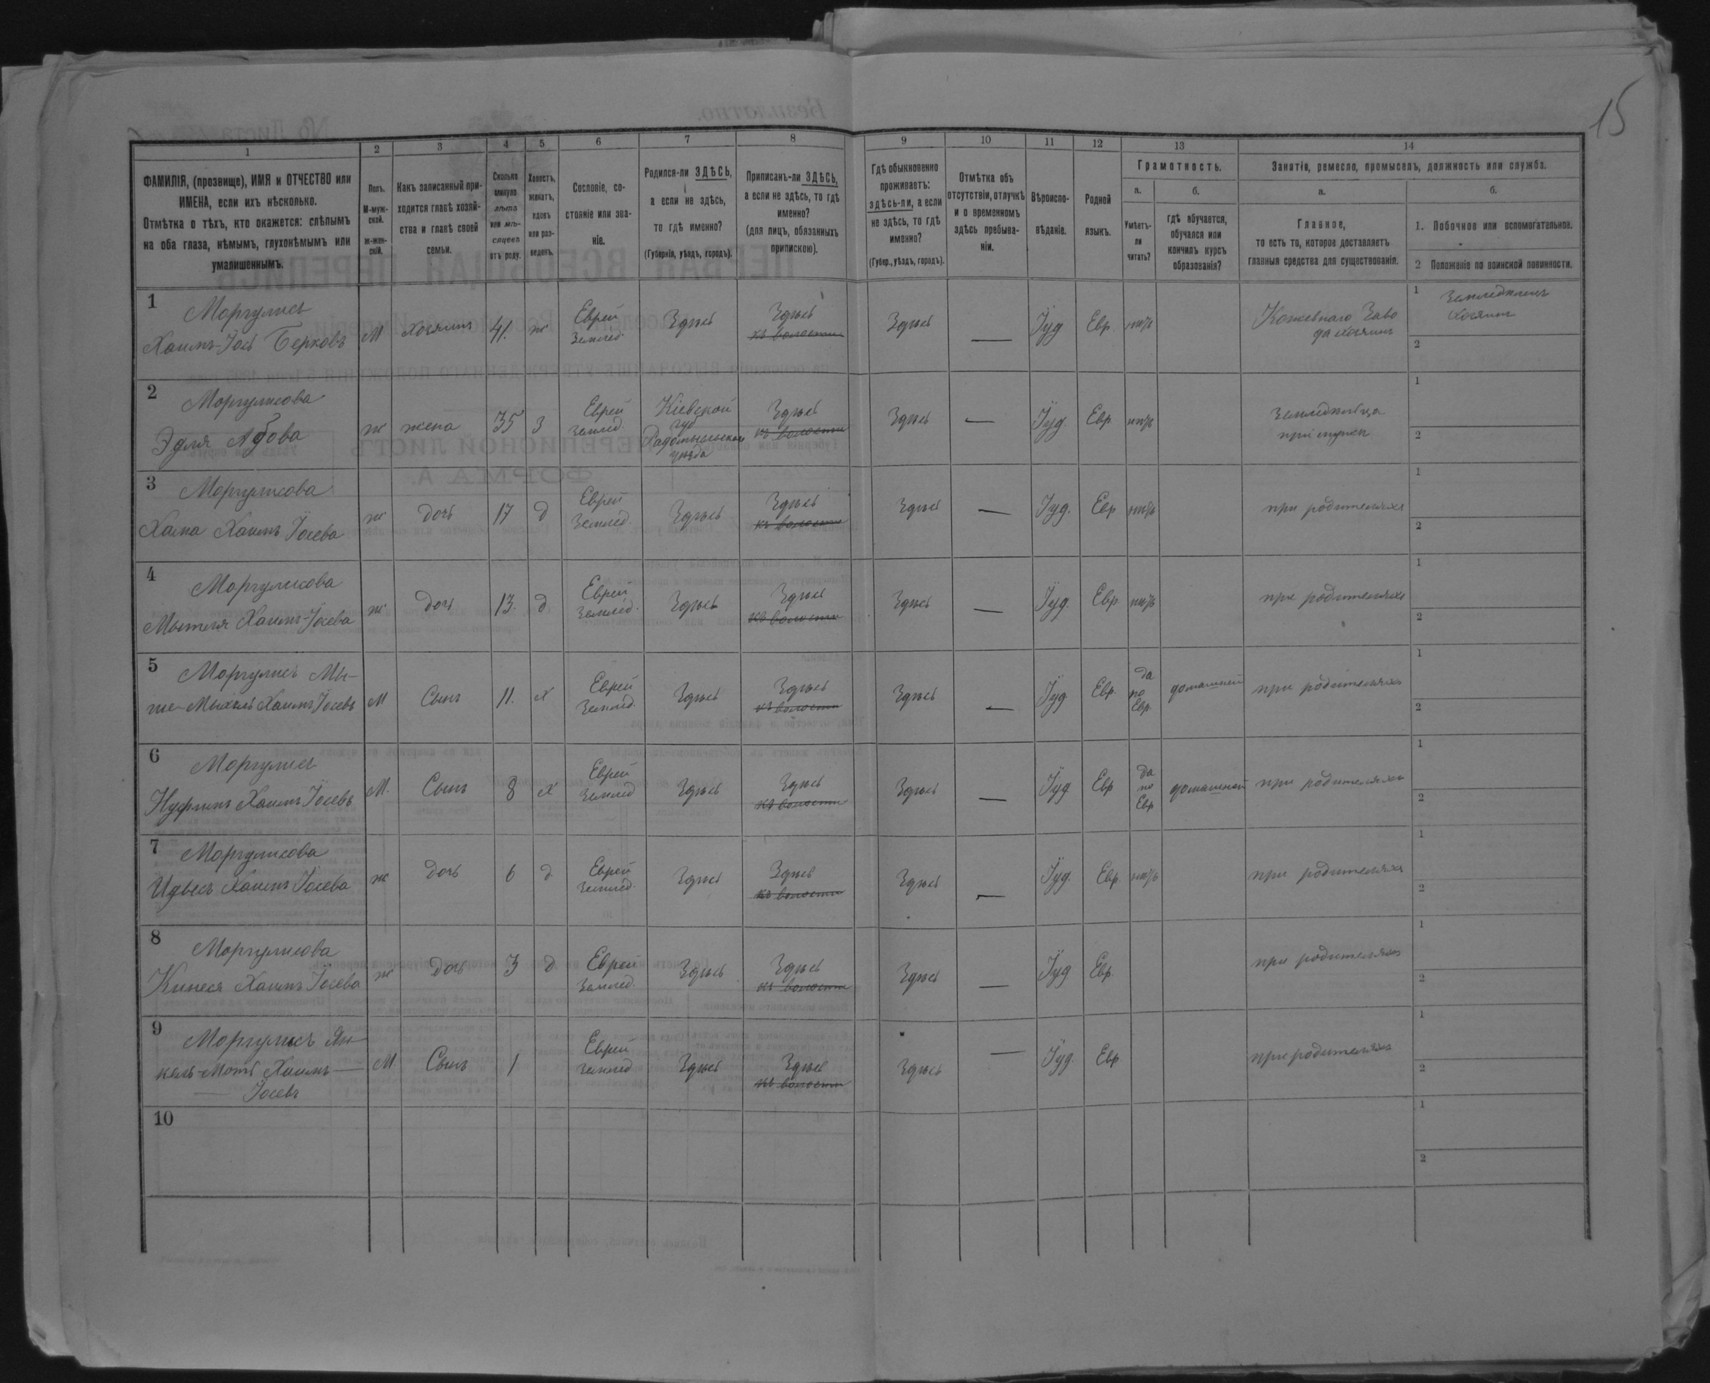 15
1 2 3 4 5 6 7 8 9 10 11 12 13 14
ФАМИЛІЯ, (прозвище), ИМЯ и ОТЧЕСТВО или
ИМЕНА, если ихъ нѣсколько.
Отмѣтка о тѣхъ, кто окажется: слѣпымъ
на оба глаза, нѣмымъ, глухонѣмымъ или
умалишеннымъ.
Полъ.
М-муж-
ской.
Ж-жен-
скій.
Какъ записанный при-
ходится главѣ хозяй-
ства и главѣ своей
семьи.
Сколько
минуло
лѣтъ
или мѣ-
сяцевъ
отъ роду.
Холостъ,
женатъ,
вдовъ
или раз-
веденъ.
Сословіе, со-
стояніе или зва-
ніе.
Родился-ли ЗДѢСЬ,
а если не здѣсь,
то гдѣ именно?
(Губернія, уѣздъ, городъ).
Приписанъ-ли ЗДѢСЬ,
а если не здѣсь, то гдѣ
именно?
(для лицъ, обязанныхъ
припискою).
Гдѣ обыкновенно
проживаетъ:
здѣсь-ли, а если
не здѣсь, то гдѣ
именно?
(Губер., уѣздъ, городъ).
Отмѣтка объ
отсутствіи, отлучкѣ
и о временномъ
здѣсь пребыва-
ніи.
Вѣроиспо-
вѣданіе.
Родной
языкъ.
Грамотность.
а.
Умѣетъ-
ли
читать?
б.
гдѣ обучается,
обучался или
кончилъ курсъ
образованія?
Занятія, ремесло, промыселъ, должность или служба.
а.
Главное,
то есть то, которое доставляетъ
главныя средства для существованія.
б.
1. Побочное или вспомогательное.
2 Положеніе по воинской повинности.
1
Моргулисъ
Хаимъ-Іось Берковъ М хозяинъ 41. ж
Еврей
Землед.
Здѣсь
Здѣсь
къ волости
Здѣсь — Іуд Евр нѣтъ
Кожевнаго Заво
да хозяинъ
1 Земледѣлецъ
хозяинъ
2
2
Моргулисова
Эдля Абова ж жена 35 з
Еврей
Землед.
Кіевской
губ
Радомысльскаго
уѣзда
Здѣсь
къ волости
Здѣсь — Іуд. Евр нѣтъ
земледѣлица
при мужѣ
1
2
3
Моргулисова
Хаина Хаимъ Іосева ж дочь 17 д
Еврей
Землед.
Здѣсь
Здѣсь
къ волости
Здѣсь — Іуд. Евр нѣтъ
при родителяхъ
1
2
4
Моргулисова
Мытля Хаимъ-Іосева ж дочь 13. д
Еврей
Землед.
Здѣсь
Здѣсь
къ волости
Здѣсь — Іуд. Евр нѣтъ
при родителяхъ
1
2
5
Моргулисъ Мы-
ше-Мыхель Хаимъ Іосевъ М Сынъ 11. х
Еврей
Землед
Здѣсь
Здѣсь
къ волости
Здѣсь — Іуд Евр.
да
по
Евр
домашней при родителяхъ
1
2
6
Моргулисъ
Нуфтинъ Хаимъ Іосевъ М. Сынъ 8 х
Еврей
Землед
Здѣсь
Здѣсь
къ волости
Здѣсь — Іуд Евр
да
по
Евр
домашней при родителяхъ
1
2
7
Моргулисова
Идьесъ Хаимъ Іосева ж дочь 6 д
Еврей
Землед.
Здѣсь
Здѣсь
къ волости
Здѣсь — Іуд. Евр нѣтъ
при родителяхъ
1
2
8
Моргулисова
Кинеся Хаимъ Іосева ж дочь 3 д
Еврей
Землед.
Здѣсь
Здѣсь
къ волости
Здѣсь — Іуд Евр.
при родителяхъ
1
2
9
Моргулисъ Ян-
кель-Моть Хаимъ —
— Іосевъ
М Сынъ 1
Еврей
Землед
Здѣсь
Здѣсь
къ волости
Здѣсь — Іуд. Евр
при родителяхъ
1
2
10
1
2